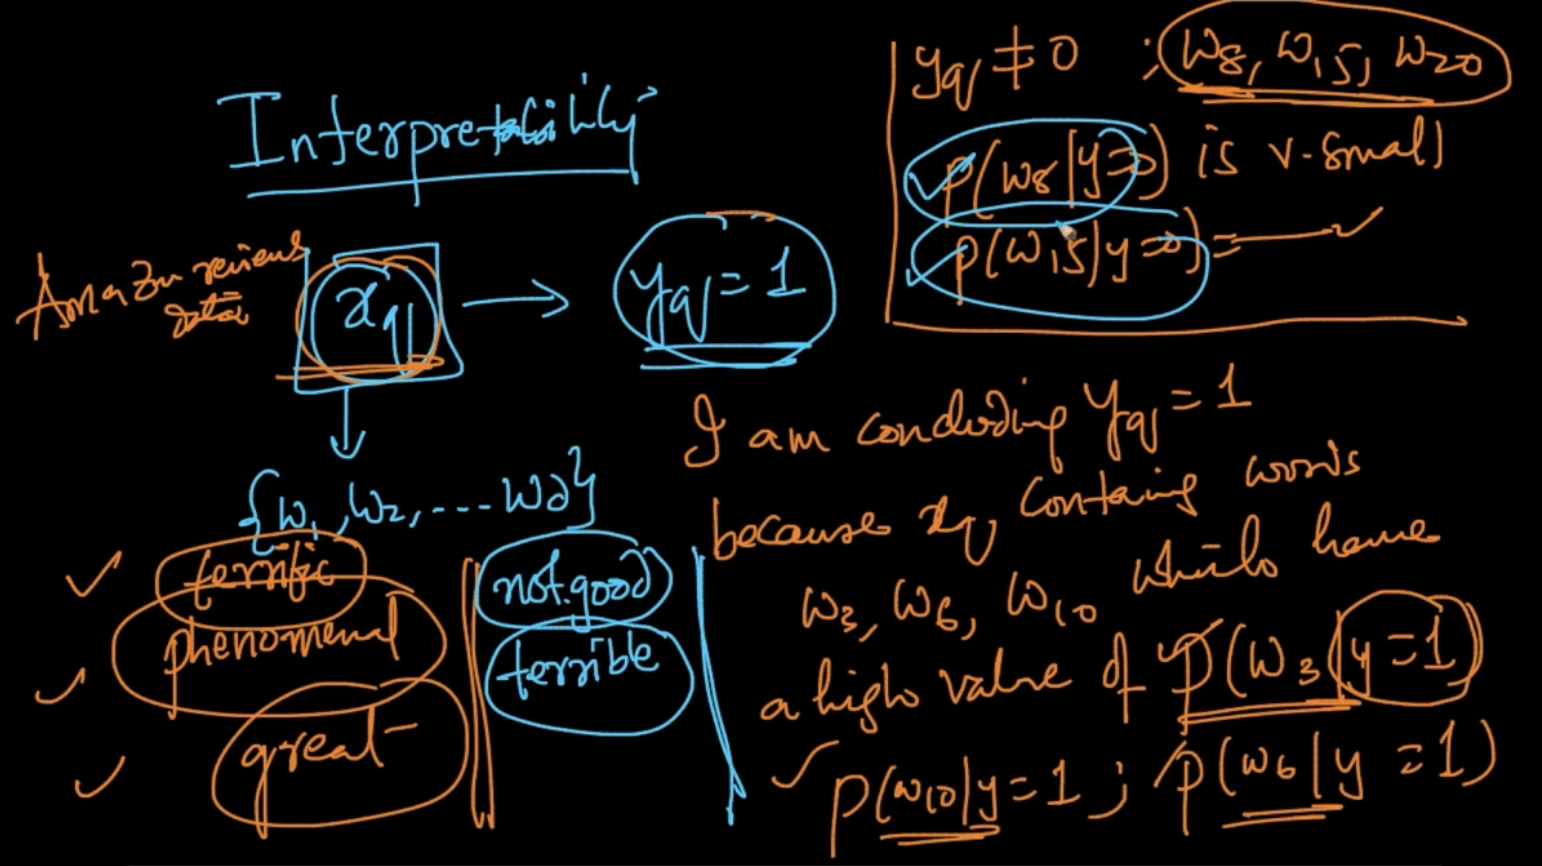 Interpretability
Amazon reviews
data
xq → yq = 1
{w1, w2, ... wd}
terrific
phenomenal
great
not good
terrible
yq ≠ 0 : w8, w15, w20
p(w8|y=0) is v. small
p(w15|y=0) =
I am concluding yq = 1
because xq containing words
w3, w6, w10 which have
a high value of p(w3|y=1)
p(w10|y=1 ; p(w6|y=1)